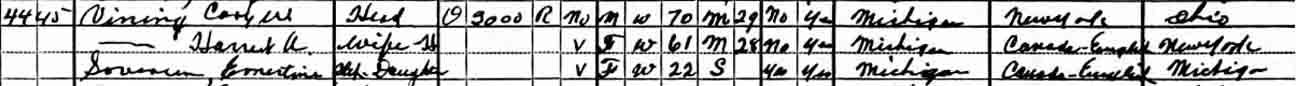 44 45 Vining Head O 3000 R No M W 70 M 29 No Yes Michigan New York Ohio
— Harriet A. Wife H V F W 61 M 28 No Yes Michigan Canada-English New York
Ernestine Step-Daughter V F W 22 S Yes Yes Michigan Canada-English Michigan